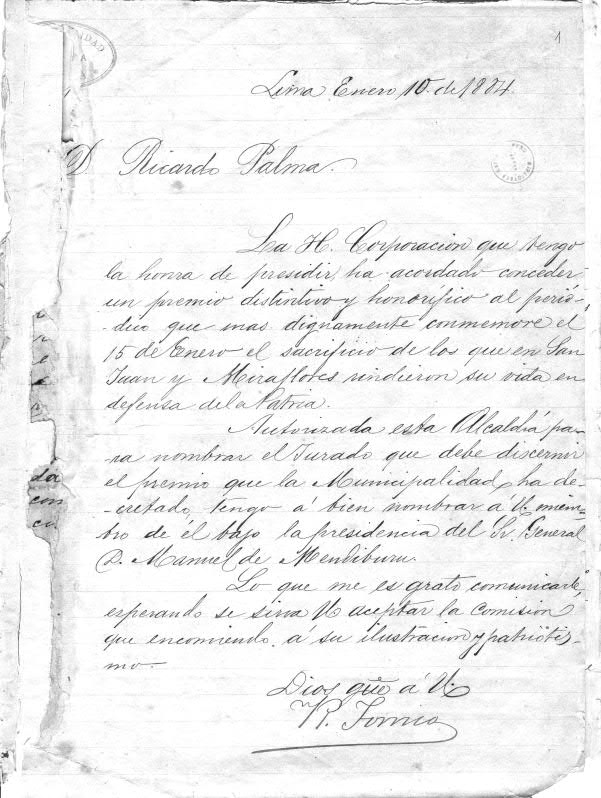 1
Lima Enero 10 de 1884
D Ricardo Palma.
La H. Corporacion que tengo
la honra de presidir, ha acordado conceder
un premio distintivo y honorífico al perió-
-dico que mas dignamente conmemore el
15 de Enero el sacrificio de los que en San
Juan y Miraflores rindieron su vida en
defensa de la Patria.
Autorizada esta Alcaldía pa-
-ra nombrar el Jurado que debe discernir
el premio que la Municipalidad ha de-
-cretado, tengo á bien nombrar á U. miem-
bro de él bajo la presidencia del Sr. General
D. Manuel de Mendiburu.
Lo que me es grato comunicarle,
esperando se sirva U aceptar la comision
que encomiendo á su ilustracion y patriotis-
-mo.
Dios gũe á U.
da
con